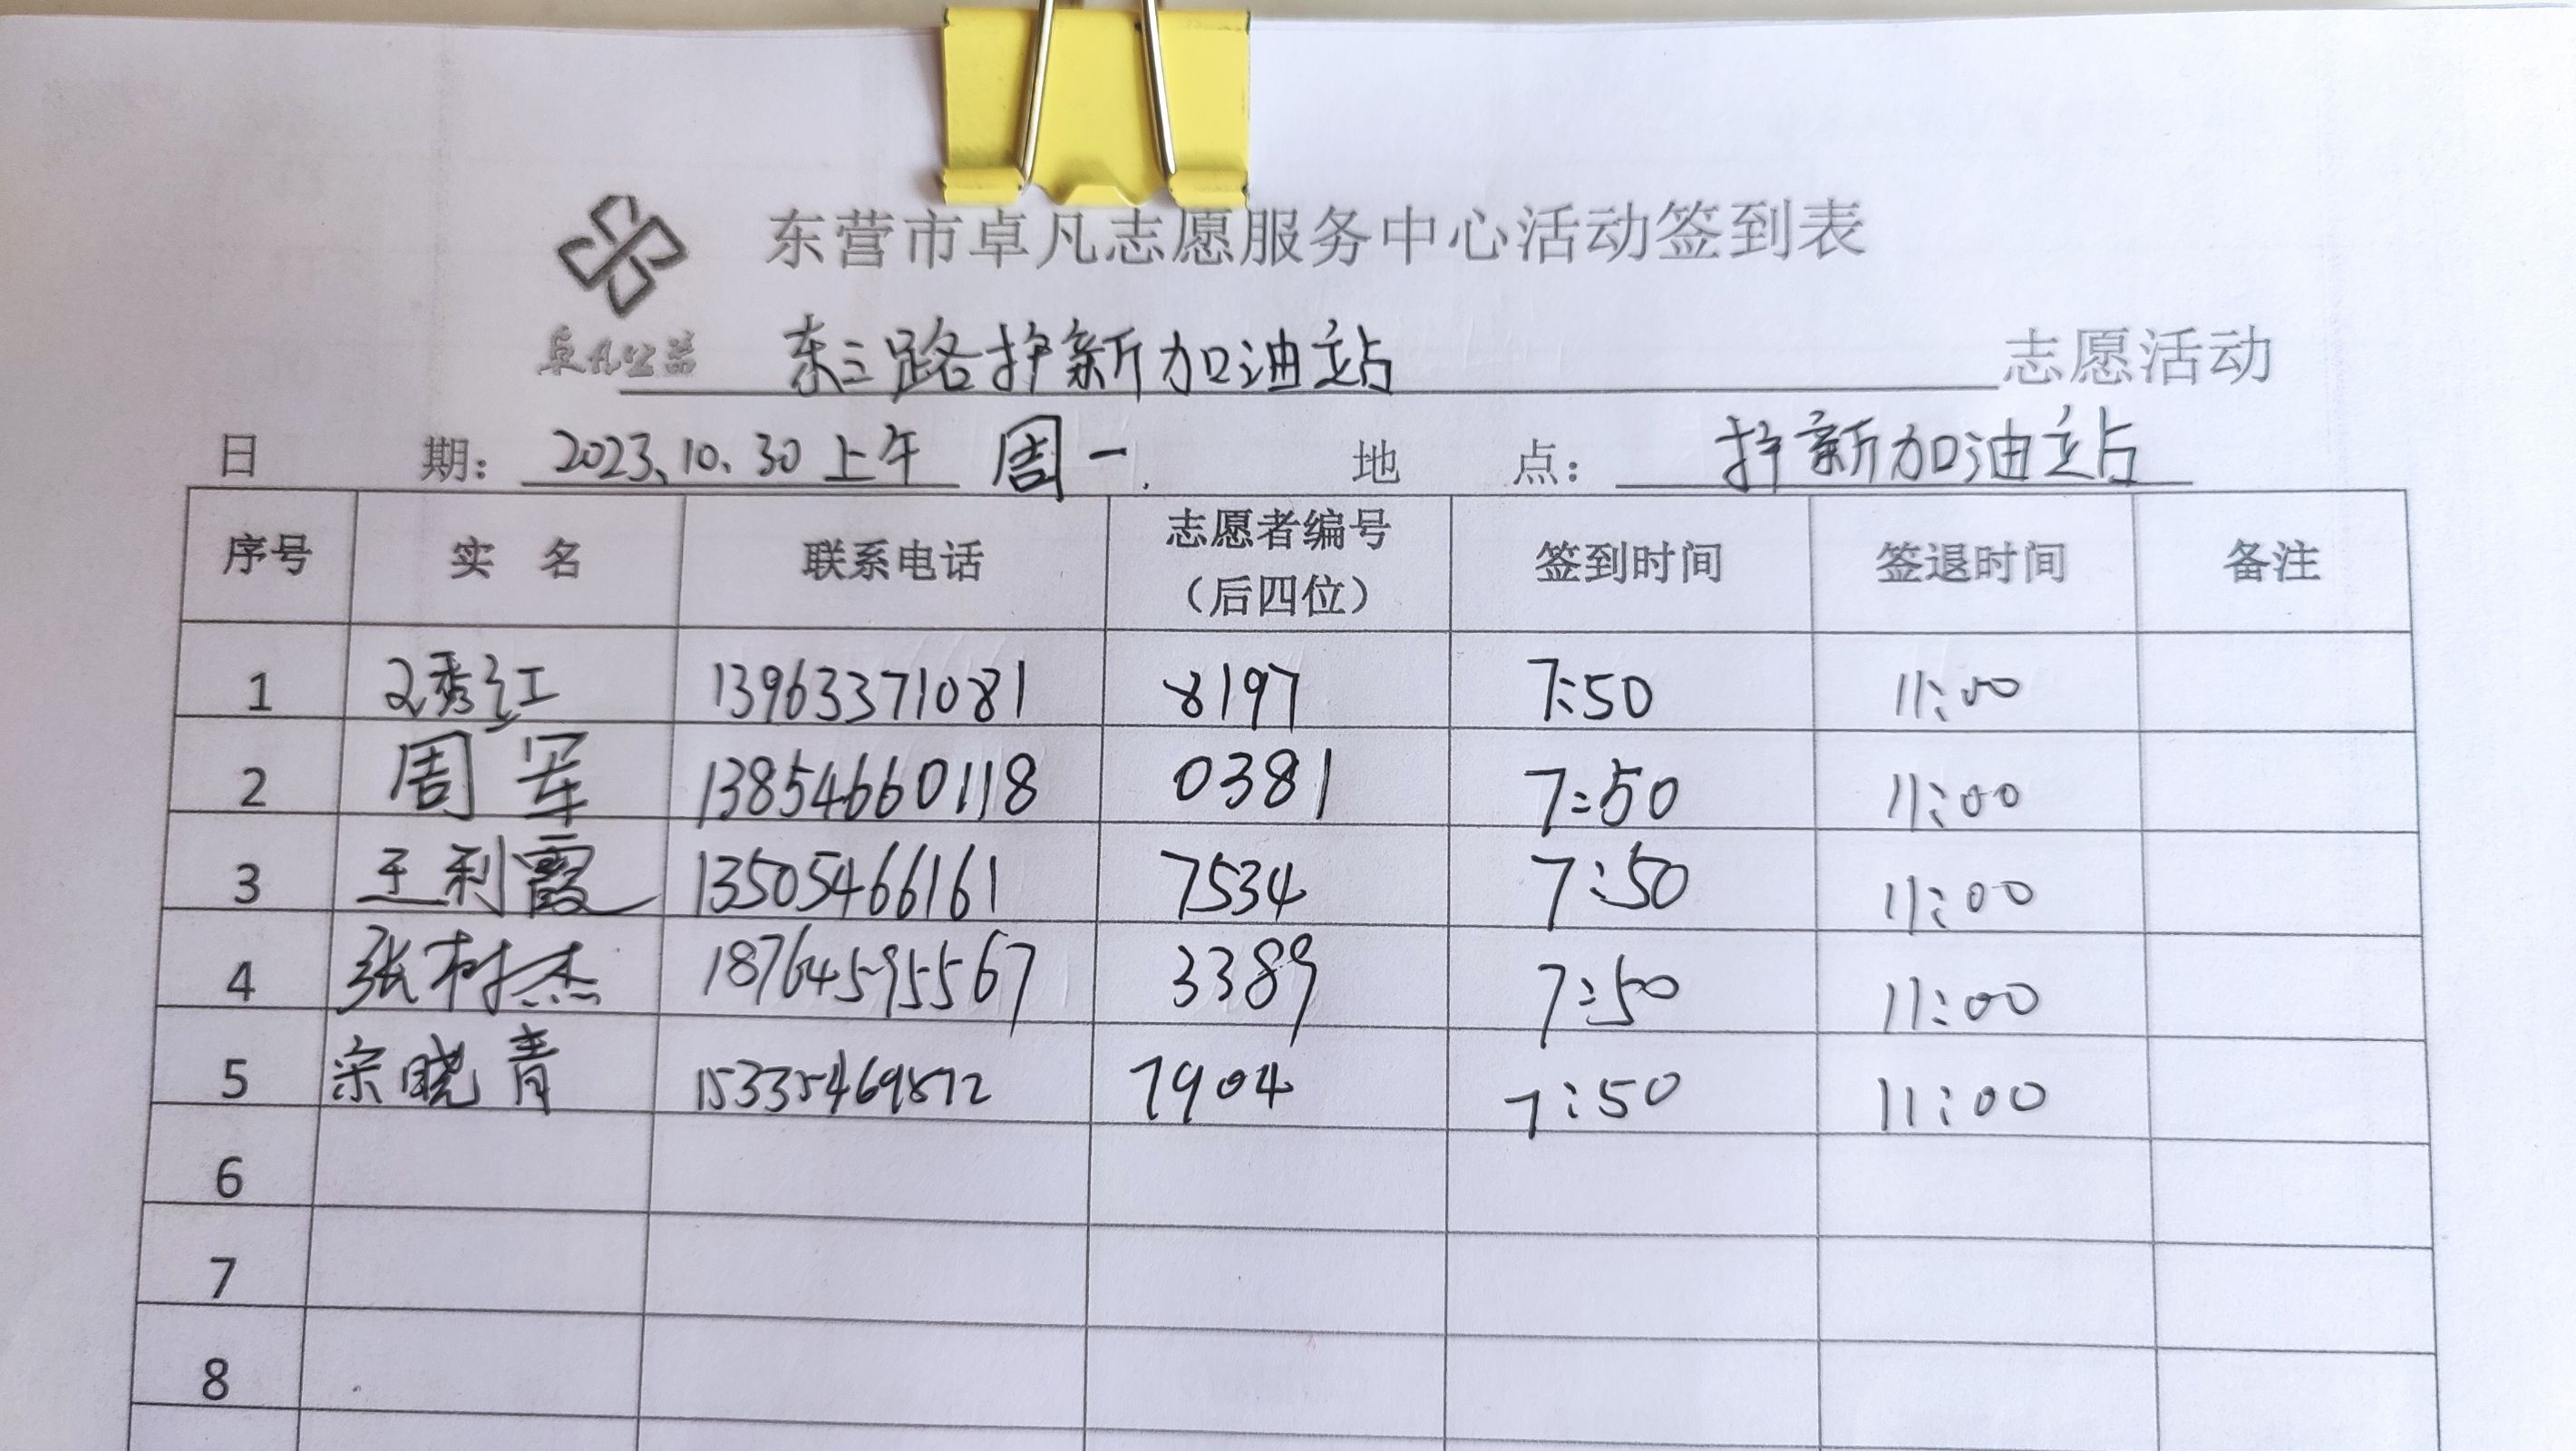 东营市卓凡志愿服务中心活动签到表
卓凡公益
东三路护新加油站 志愿活动
日 期: 2023.10.30 上午 周一 地 点: 护新加油站
序号 实 名 联系电话 志愿者编号（后四位） 签到时间 签退时间 备注
1 秀红 13963371081 8197 7:50 11:00
2 周军 13854660118 0381 7:50 11:00
3 王利霞 13505466161 7534 7:50 11:00
4 张树杰 18764595567 3389 7:50 11:00
5 宗晓青 15335469872 7904 7:50 11:00
6
7
8